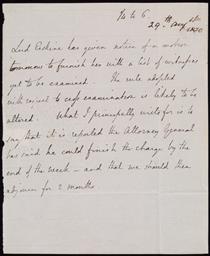 ¼ to 6
29th Aug
1820
Lord Erskine has given notice of a motion
tomorrow to furnish her with a list of witnesses
yet to be examined - The rule adopted
with respect to cross examination is likely to be
altered. What I principally write for is to
say that it is reported the Attorney General
has said he could finish the charge by the
end of the week - and that we should then
adjourn for 2 months